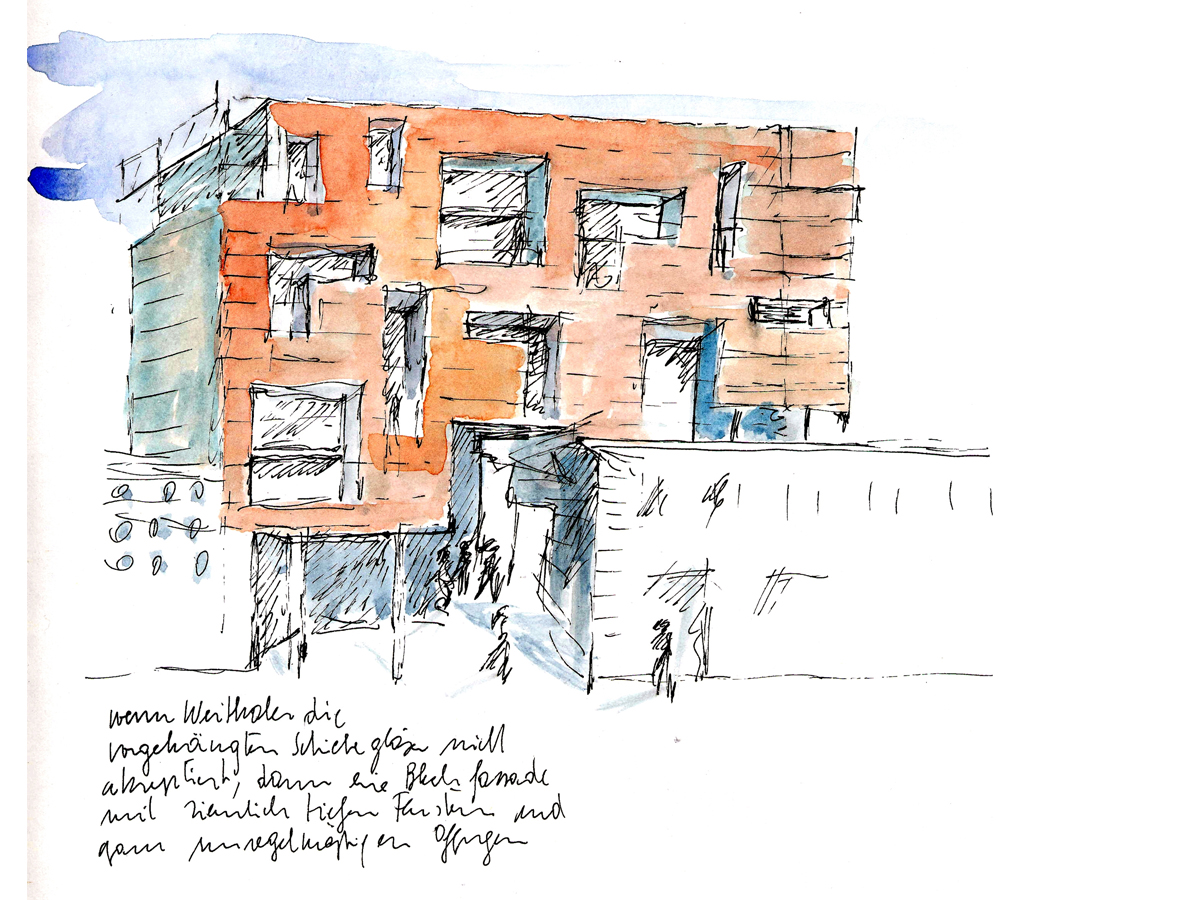 wenn Weithaler die
vorgehängten Schiebegläser nicht
akzeptiert, dann eine Blechfassade
mit ziemlich tiefen Fenstern und
ganz unregelmäßigen Öffngen